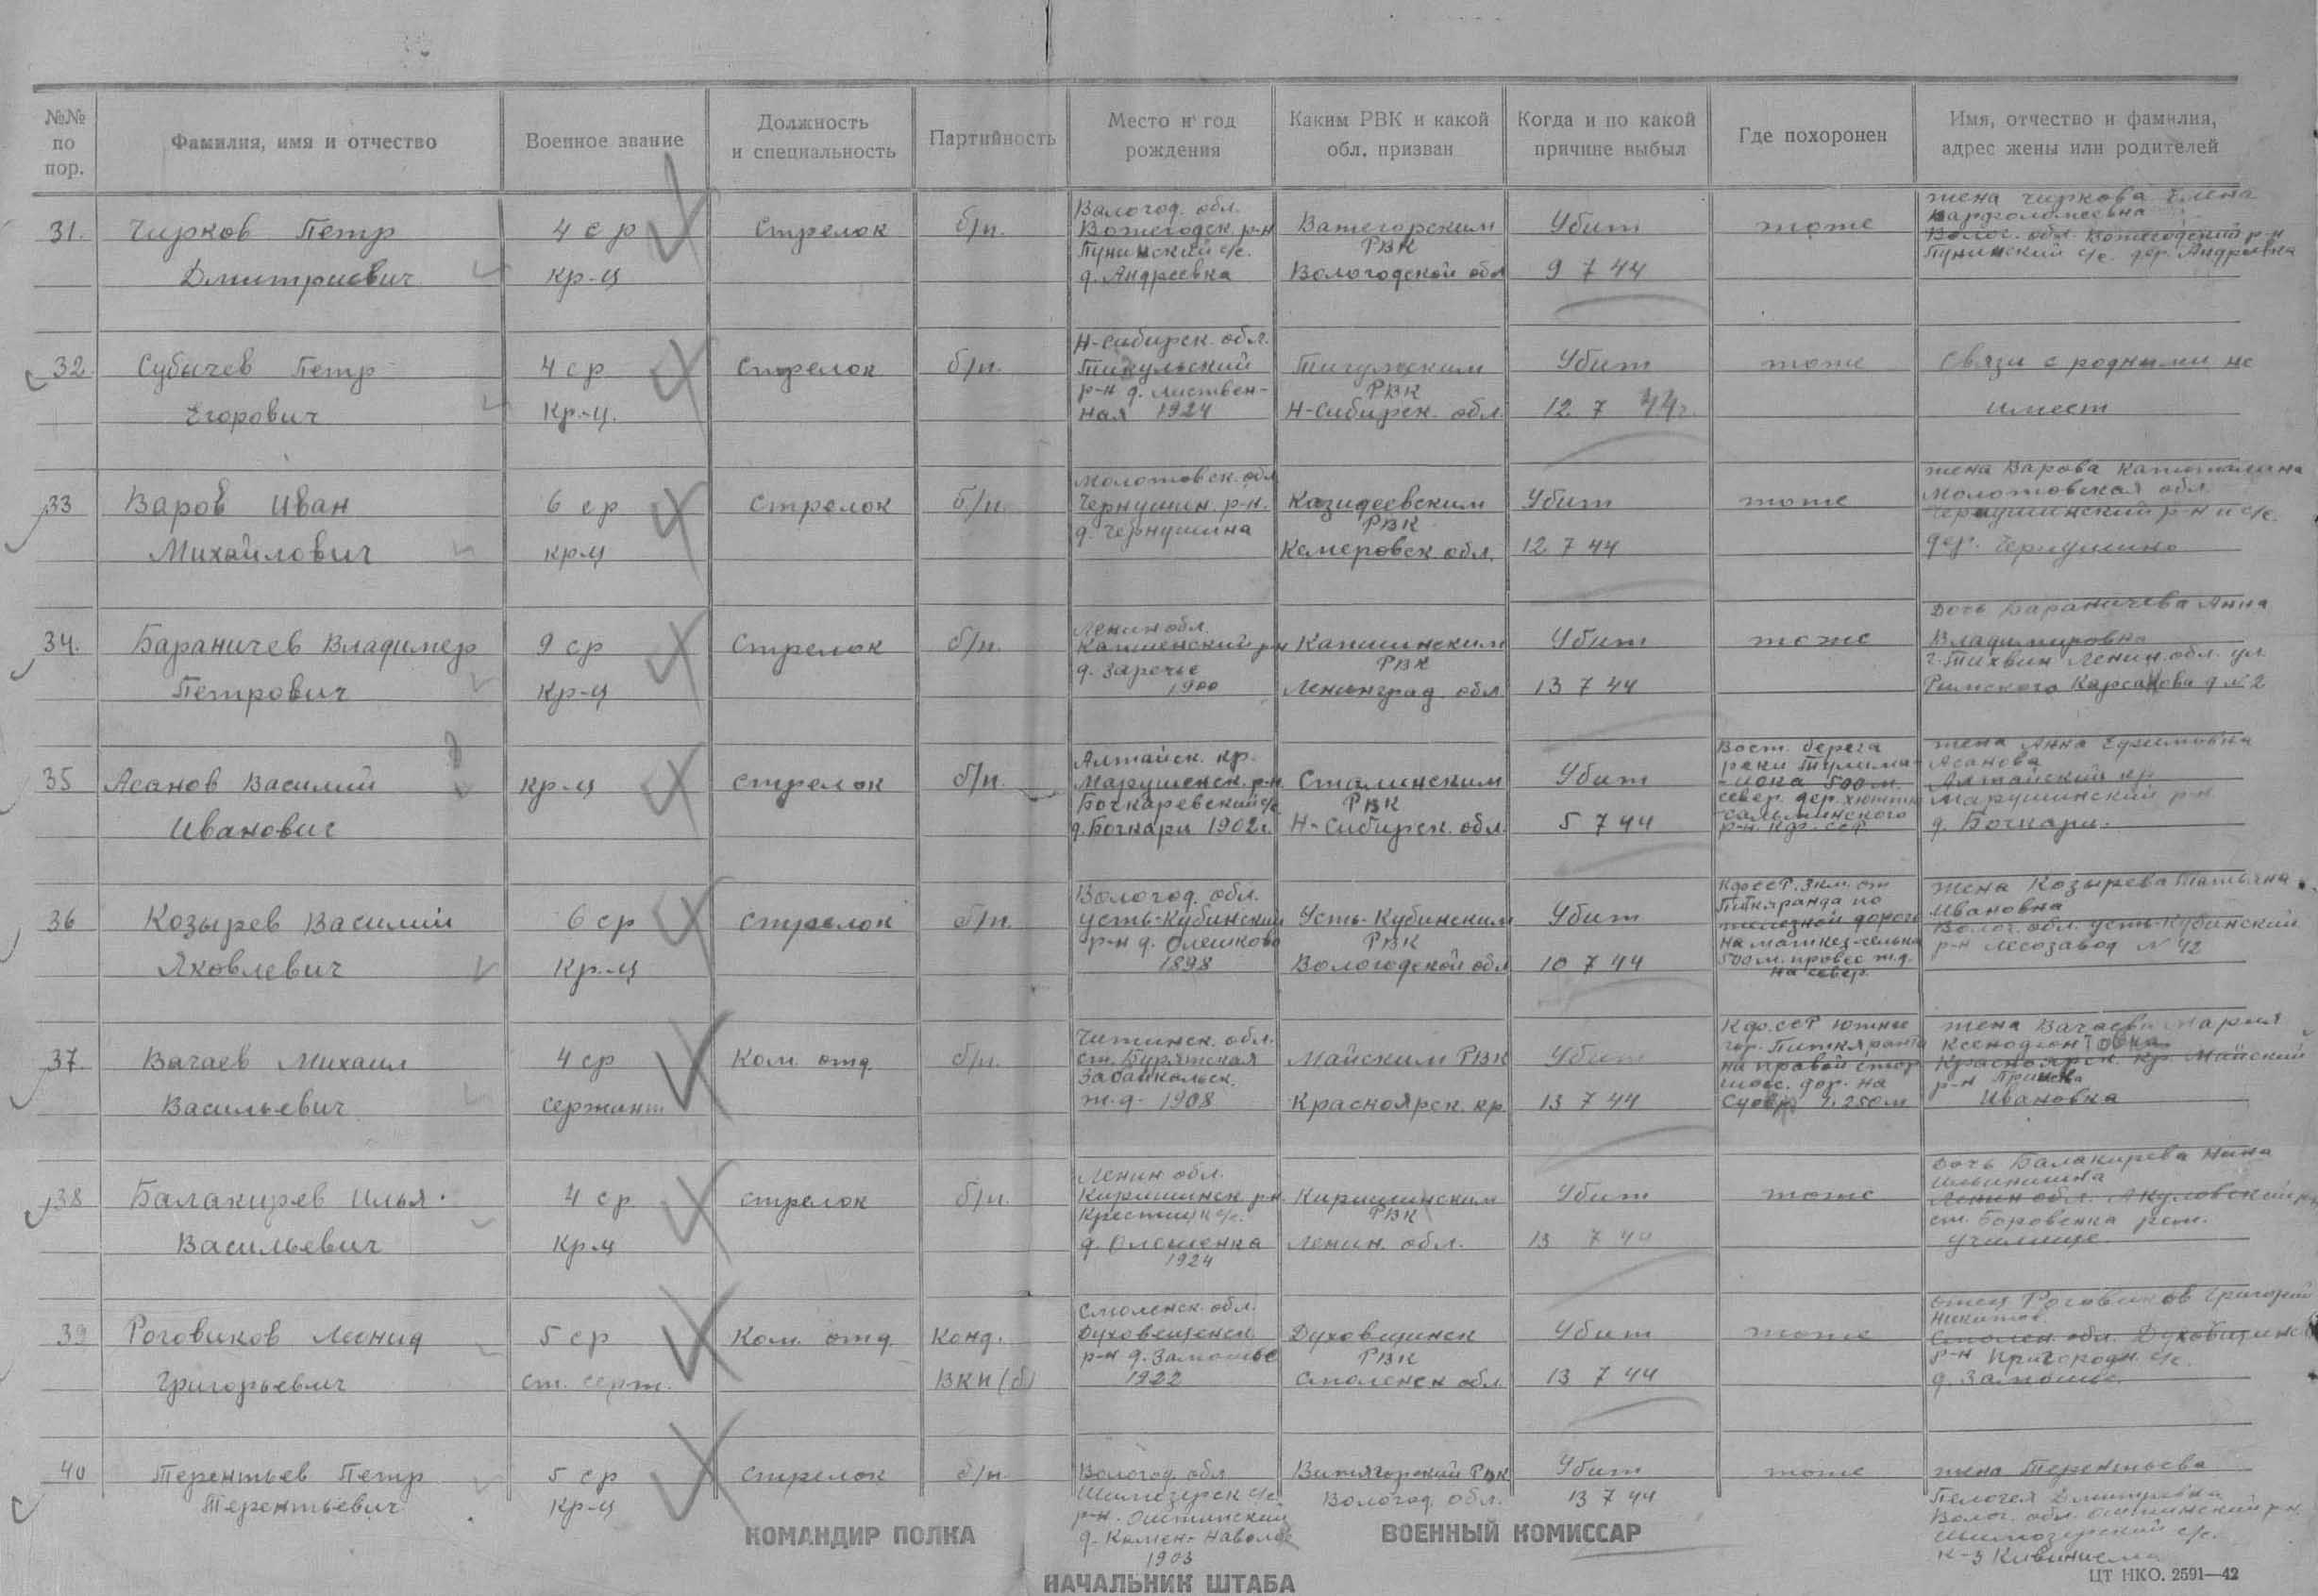 №№ по пор.
Фамилия, имя и отчество
Военное звание
Должность и специальность
Партийность
Место и год рождения
Каким РВК и какой обл. призван
Когда и по какой причине выбыл
Где похоронен
Имя, отчество и фамилия, адрес жены или родителей
31.
Чирков Петр
Дмитриевич
4 ср
кр-ц
Стрелок
б/п.
Вологод. обл.
Вожегодск. р-н
Пунинский с/с.
д. Андреевка
Вожегорским
РВК
Вологодской обл
Убит
9 7 44
тоже
жена Чиркова Елена
Варфоломеевна
Волог. обл. Вожегодский р-н
Пунинский с/с. дер. Андреевка
32
Субычев Петр
Егорович
4 ср
Кр-ц.
Стрелок
б/п.
Н-Сибирск. обл.
р-н д. Листвен-
ная 1924
РВК
Н-Сибирск. обл.
Убит
12 7 44г.
тоже
Связи с родными не
имеет
33
Варов Иван
Михайлович
6 ср
кр-ц
Стрелок
б/п.
Молотовск. обл
Чернушин. р-н.
д. Чернушина
РВК
Кемеровск обл.
Убит
12 7 44
тоже
жена Варова
Молотовская обл.
Чернушинский р-н
дер. Чернушино
34.
Бараничев Владимер
Петрович
9 ср
Кр-ц
Стрелок
б/п.
Ленин обл.
р-н
д. Заречье
1900
Капшинским
РВК
Ленинград. обл
Убит
13 7 44
тоже
Дочь Бараничева Анна
Владимировна
г. Тихвин Ленин. обл. ул.
Римского Карсакова д N 2
35
Асанов Василий
Иванович
кр-ц
стрелок
б/п.
Алтайск. кр.
Марушенск. р-н
Бочкаревский с/с
д. Бочкари 1902 г.
Сталинским
РВК
Н-Сибирск. обл.
Убит
5 7 44
Вост. берега
реки
500 м.
север. дер.
р-н. Кфо. ССР
жена Анна Ефимовна
Асанова
Алтайский кр
Марушинский р-н
д. Бочкари.
36
Козырев Василий
Яковлевич
6 ср
Кр-ц
Стрелок
б/п.
Вологод. обл.
Усть-Кубинский
р-н д. Олешково
1898
Усть-Кубинским
РВК
Вологодской обл
Убит
10 7 44
КфоССР. 3 км. от
Питкяранда по
железной дороге
500 м.
на север.
жена Козырева Татьяна
Ивановна
Волог. обл. Усть-Кубинский
р-н Лесозавод N 42
37.
Вагаев Михаил
Васильевич
4 ср
сержант
Ком. отд.
б/п.
Читинск. обл.
ст. Бурятская
Забайкальск.
ж.д. 1908
Майским РВК
Красноярск. кр
Убит
13 7 44
Кфо. ССР южнее
гор. Питкяранта
на правой стор
шосс. дор. на
250 м
жена Вагаева Мария
Ксенофонтовна
Красноярск. кр. Майский
р-н
Ивановка
38
Балакирев Илья
Васильевич
4 ср
Кр-ц
стрелок
б/п.
Ленин обл.
Киришинск р-н
с/с.
д. Олешенка
1924
Киришинским
РВК
Ленин. обл.
Убит
13 7 44
тоже
Дочь Балакирева Нина
Ильинишна
Ленин обл. Акуловский р-н
ст. Боровенка рем.
училище
39
Роговиков Леонид
Григорьевич
5 ср
ст. серж.
Ком. отд
Конд.
ВКП(б)
Смоленск. обл.
Духовещенск
р-н д. Замошье
1922
Духовщинск
РВК
Смоленск обл.
Убит
13 7 44
тоже
отец Роговиков Григорий
Никитов.
Смолен. обл. Духовщинск
р-н Пригородн. с/с.
д. Замошье
40
Терентьев Петр
Терентьевич
5 ср
Кр-ц
Стрелок
б/п.
Вологод. обл
Шимозерск с/с.
р-н. Оштинский
д. Камен-Наволок
1903
Витягорский РВК
Вологод. обл.
Убит
13 7 44
тоже
жена Терентьева
Пелогея Дмитриевна
Волог. обл. Оштинский р-н.
Шимозерский с/с.
к-з
КОМАНДИР ПОЛКА
ВОЕННЫЙ КОМИССАР
НАЧАЛЬНИК ШТАБА
ЦТ НКО. 2591—42